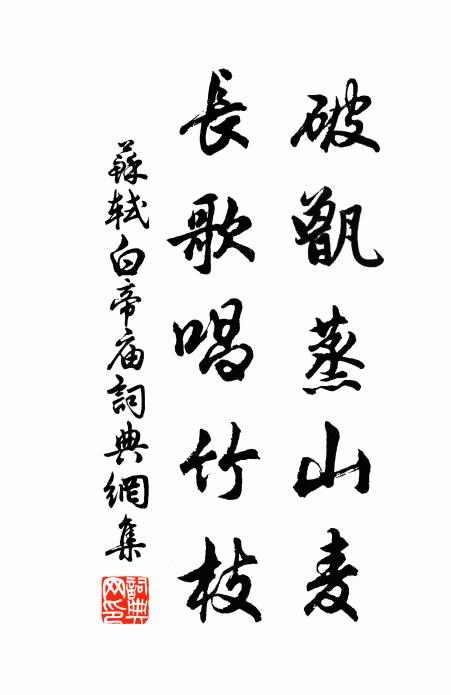 破甑蒸山麦
長歌唱竹枝
蘇軾白帝庙詞典網集
詞典
网印